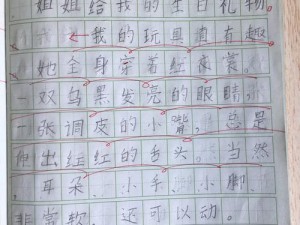 姐姐给我的生日礼物。
我的玩具真有趣
她全身穿着红衣裳。
一双乌黑发亮的眼睛，
一张调皮的小嘴，总是
伸出红红的舌头。当然
耳朵、小手、小脚
非常软，还可以动。